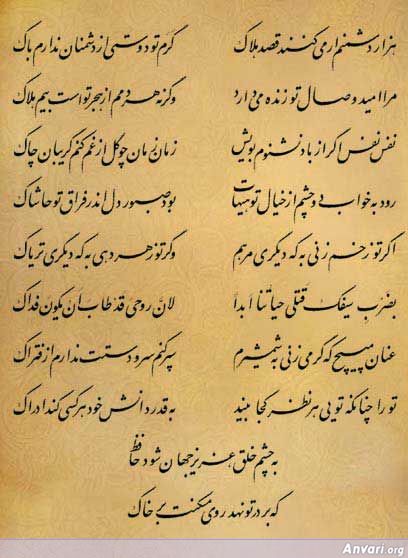 هزار دشمنم ار می‌کنند قصد هلاک گرم تو دوستی از دشمنان ندارم باک
مرا امید وصال تو زنده می‌دارد وگرنه هر دمم از هجر تو است بیم هلاک
نفس نفس اگر از باد نشنوم بویش زمان زمان چو گل از غم کنم گریبان چاک
رود به خواب دو چشم از خیال تو هیهات بود صبور دل اندر فراق تو حاشاک
اگر تو زخم زنی به که دیگری مرهم وگر تو زهر دهی به که دیگری تریاک
بضرب سیفک قتلی حیاتنا ابدا لان روحی قد طاب ان یکون فداک
عنان مپیچ که گر می زنی به شمشیرم سپر کنم سر و دستت ندارم از فتراک
تو را چنانکه تویی هر نظر کجا بیند به قدر دانش خود هر کسی کند ادراک
به چشم خلق عزیز جهان شود حافظ
که بر در تو نهد روی مسکنت بر خاک
Anvari.org